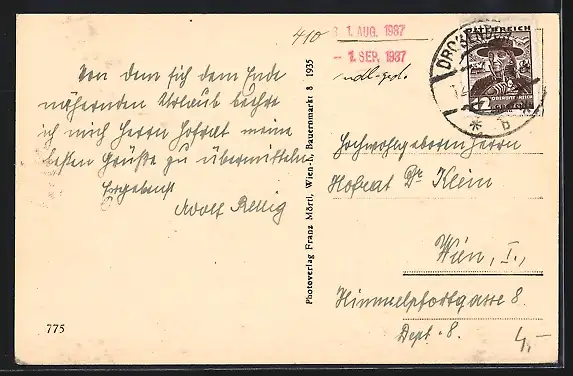 410
3 1. AUG. 1937
- 1. SEP. 1937
ÖSTERREICH
DROS
12
* b
Von dem sich dem Ende
nähernden Urlaub beehre
ich mich Herrn Hofrat meine
besten Grüße zu übermitteln
Ergebenst
Adolf Rettig
775
Photoverlag Franz Mörtl, Wien-I., Bauernmarkt 8 1935
Hochwohlgeboren Herrn
Hofrat Dr Klein
Wien, I.,
Himmelpfortgasse 8.
Dept. 8.
4,-